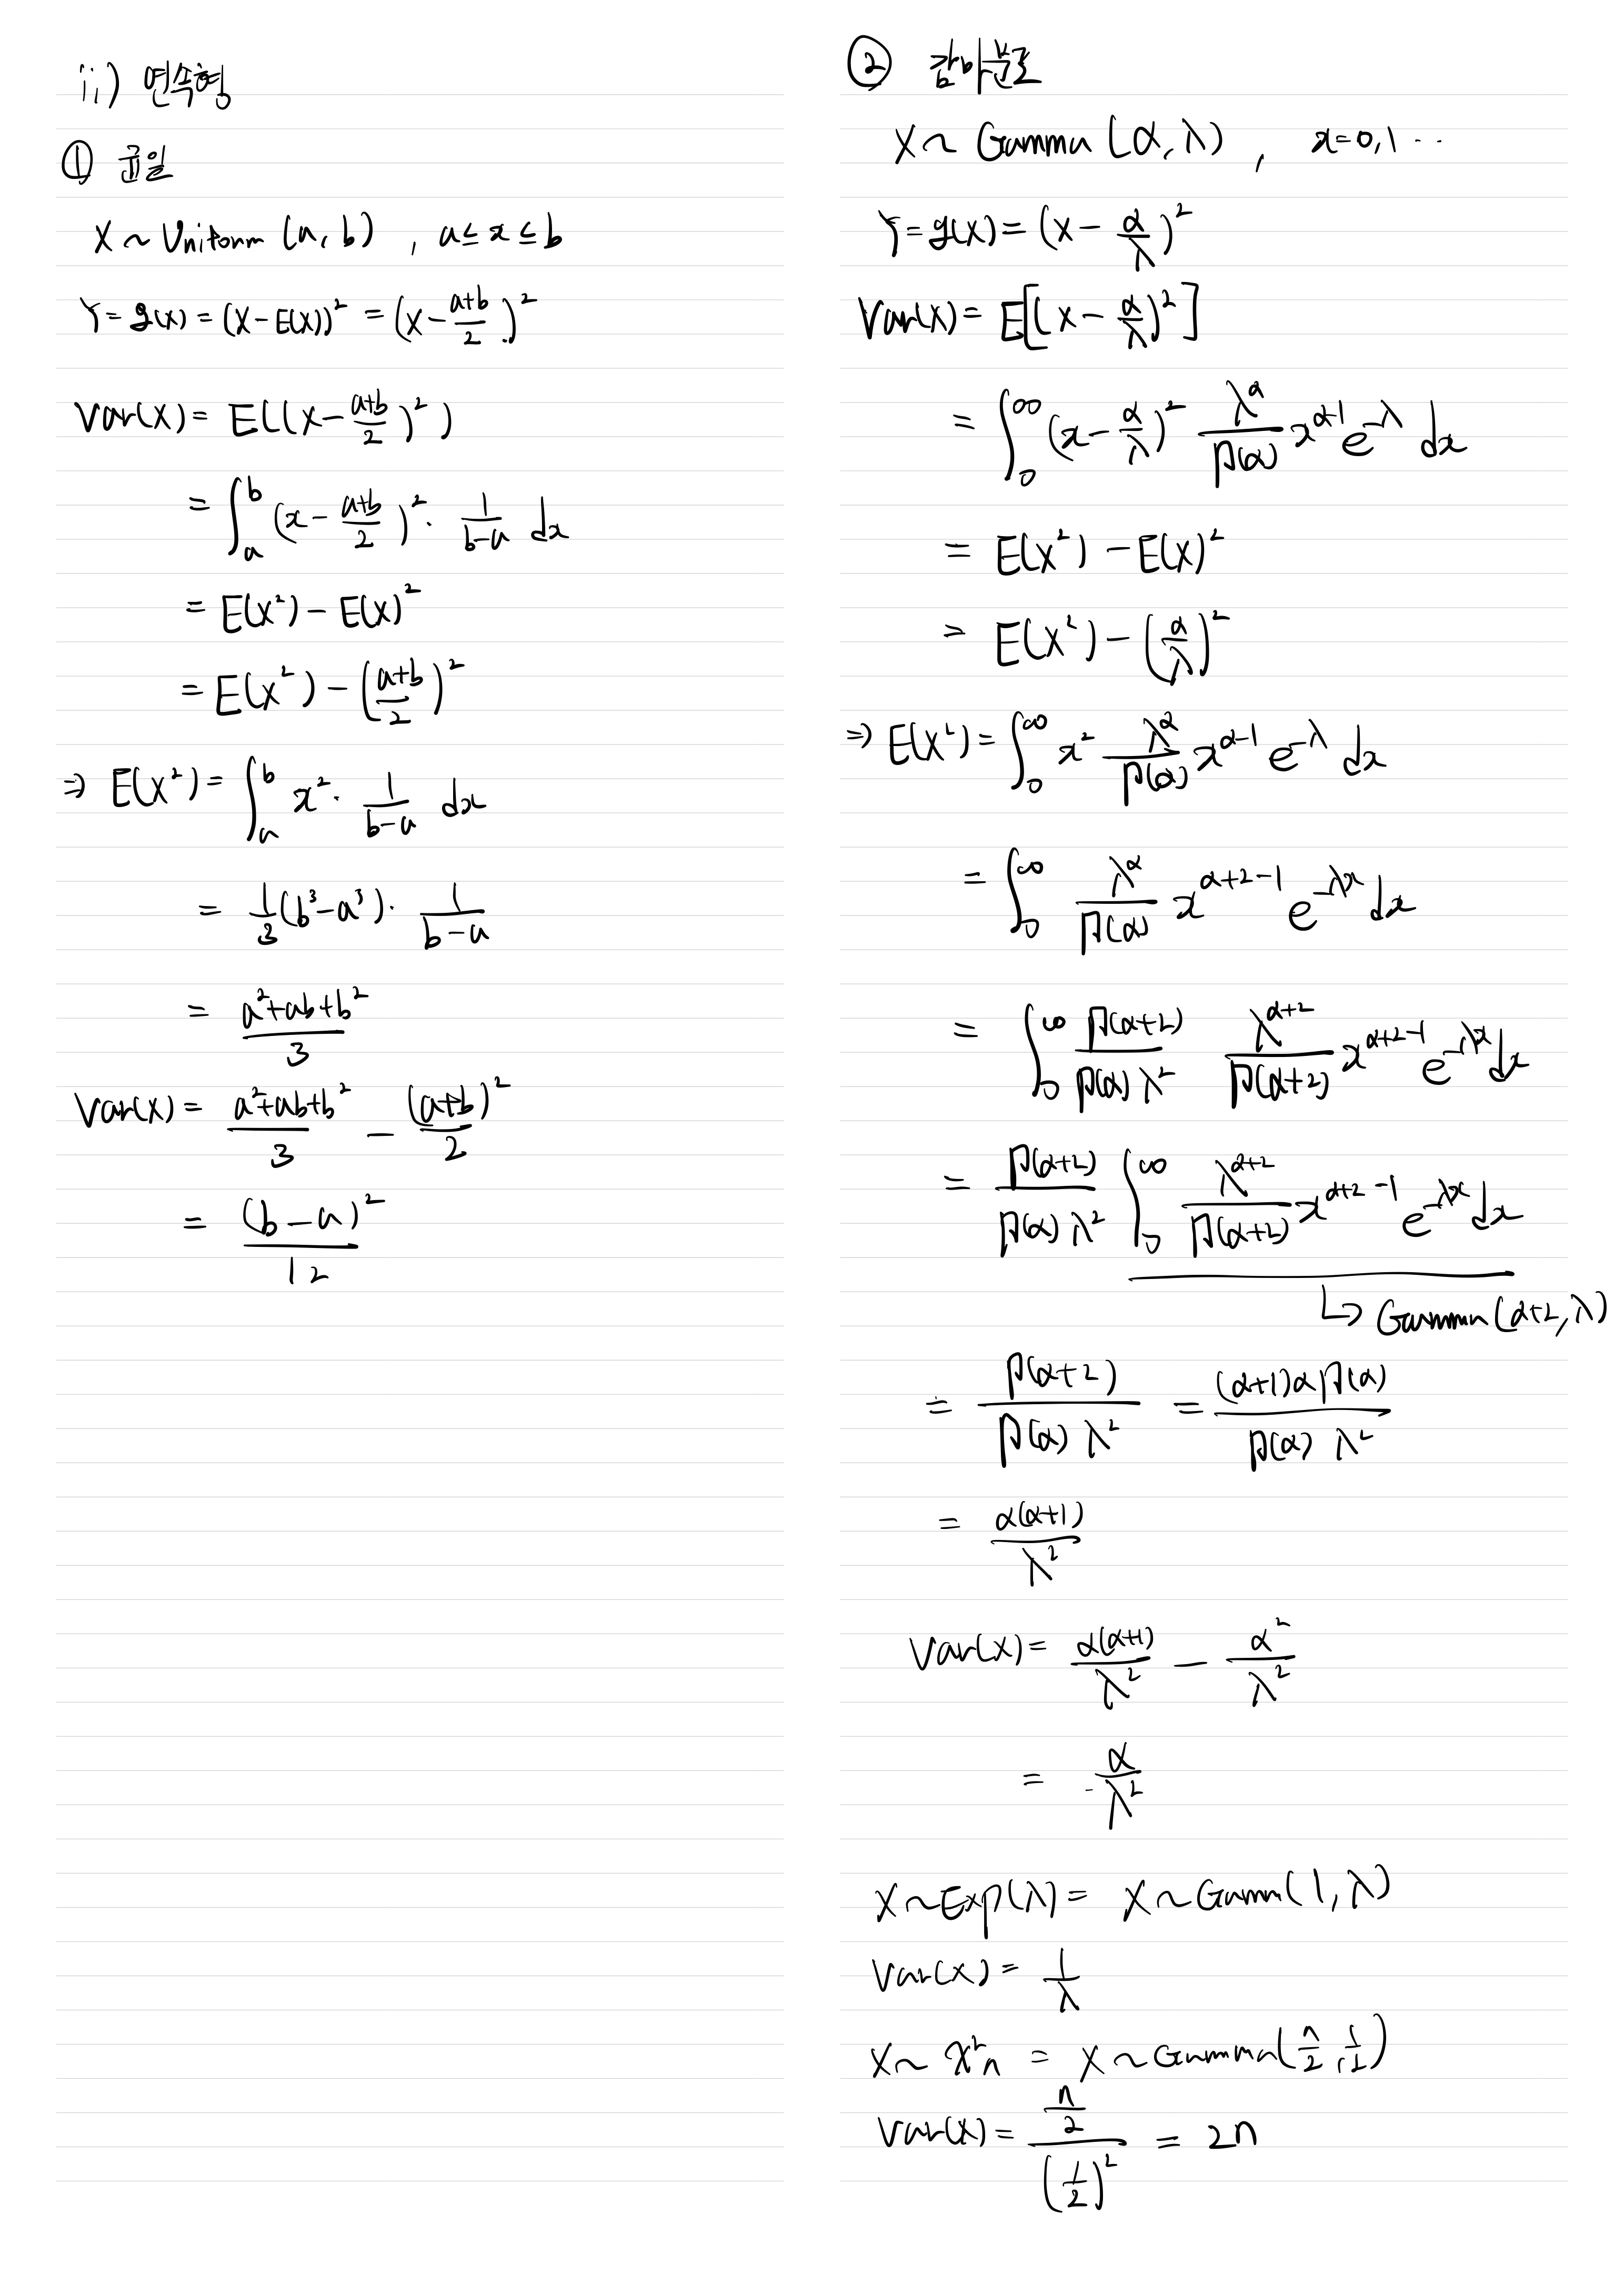 ii) 연속형
① 균일
X ~ Uniform (a, b) , a ≤ x ≤ b
Y = g(x) = (X - E(X))² = (X - \frac{a+b}{2})²
Var(X) = E((X - \frac{a+b}{2})²)
= ∫_a^b (x - \frac{a+b}{2})² · \frac{1}{b-a} dx
= E(X²) - E(X)²
= E(X²) - (\frac{a+b}{2})²
⇒ E(X²) = ∫_a^b x² · \frac{1}{b-a} dx
= \frac{1}{3}(b³ - a³) · \frac{1}{b-a}
= \frac{a²+ab+b²}{3}
Var(X) = \frac{a²+ab+b²}{3} - \frac{(a+b)²}{2}
= \frac{(b-a)²}{12}
② 감마분포
X ~ Gamma (α, λ) , x = 0, 1 ⋯
Y = g(X) = (X - \frac{α}{λ})²
Var(X) = E[(X - \frac{α}{λ})²]
= ∫_0^∞ (x - \frac{α}{λ})² \frac{λ^α}{Γ(α)} x^{α-1} e^{-λ} dx
= E(X²) - E(X)²
= E(X²) - (\frac{α}{λ})²
⇒ E(X²) = ∫_0^∞ x² \frac{λ^α}{Γ(α)} x^{α-1} e^{-λ} dx
= ∫_0^∞ \frac{λ^α}{Γ(α)} x^{α+2-1} e^{-λx} dx
= ∫_0^∞ \frac{Γ(α+2)}{Γ(α) λ²} \frac{λ^{α+2}}{Γ(α+2)} x^{α+2-1} e^{-λx} dx
= \frac{Γ(α+2)}{Γ(α) λ²} ∫_0^∞ \frac{λ^{α+2}}{Γ(α+2)} x^{α+2-1} e^{-λx} dx
↳ Gamma (α+2, λ)
= \frac{Γ(α+2)}{Γ(α) λ²} = \frac{(α+1)α Γ(α)}{Γ(α) λ²}
= \frac{α(α+1)}{λ²}
Var(X) = \frac{α(α+1)}{λ²} - \frac{α²}{λ²}
= \frac{α}{λ²}
X ~ Exp(λ) = X ~ Gamm(1, λ)
Var(X) = \frac{1}{λ}
X ~ χ²n = X ~ Gamma(\frac{n}{2}, \frac{1}{2})
Var(X) = \frac{\frac{n}{2}}{(\frac{1}{2})²} = 2n